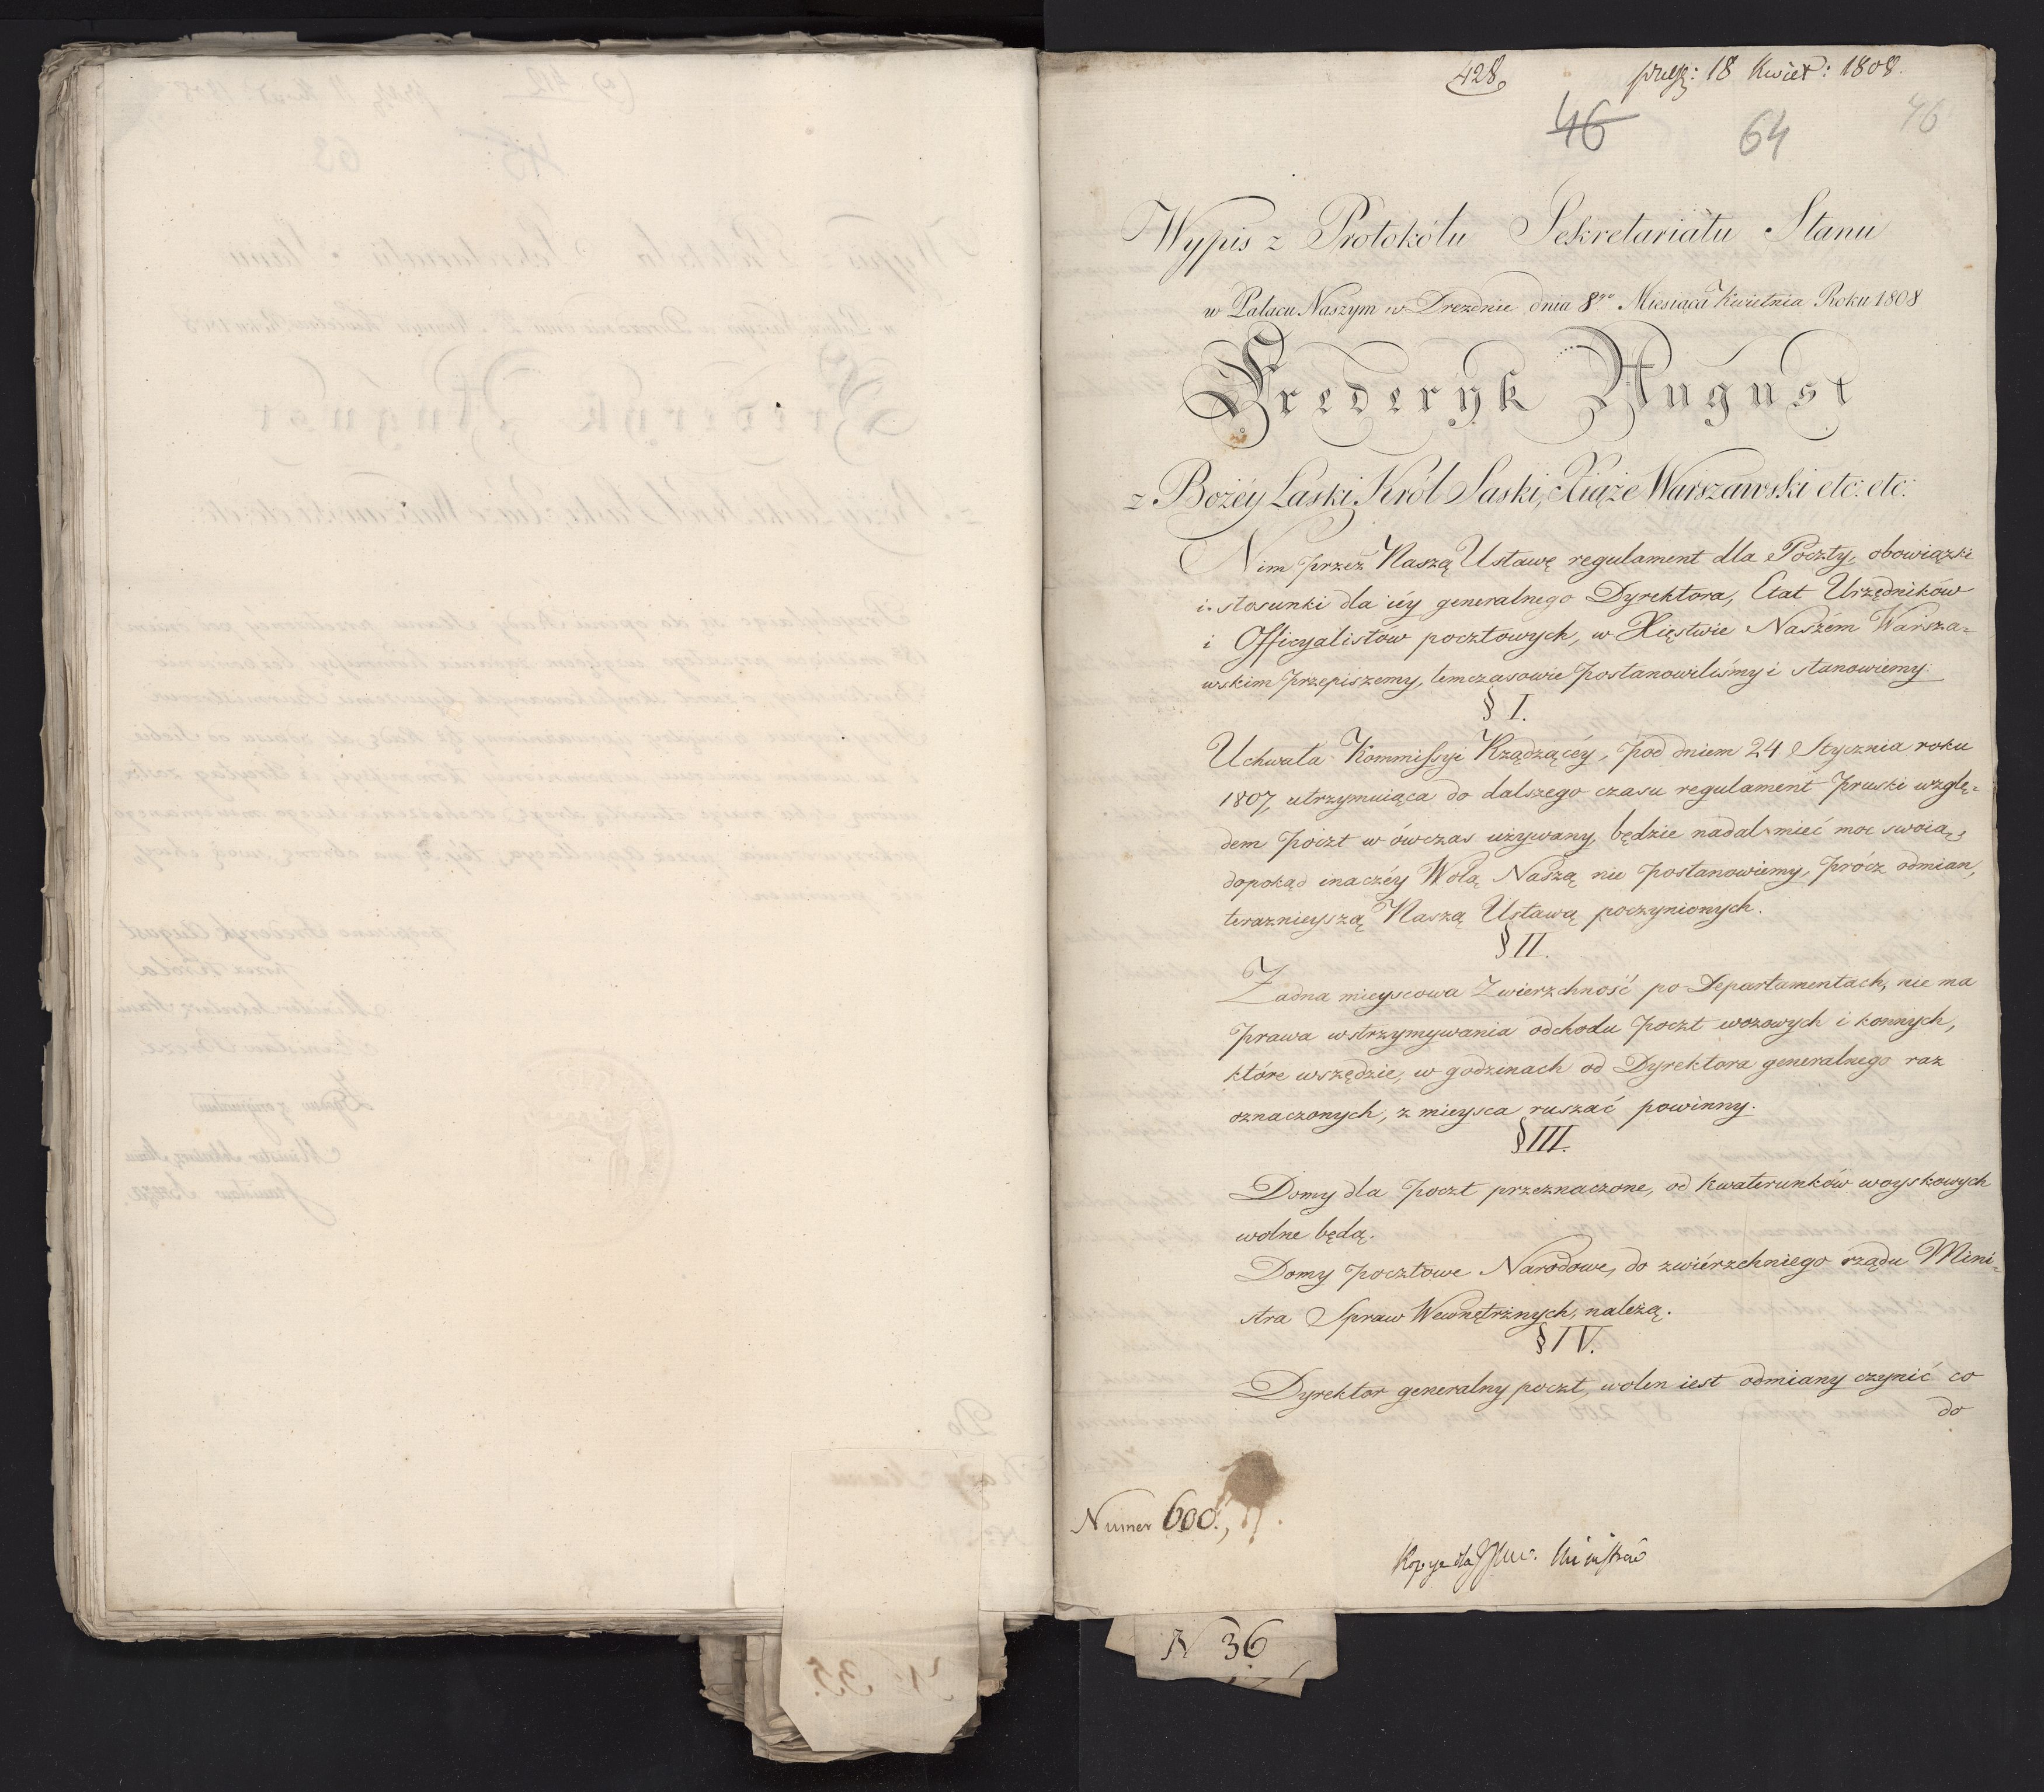 428.
46
64
46
18 Kwiet: 1808.
Wypis z Protokółu Sekretariatu Stanu
w Pałacu Naszym w Dreznie dnia 8go Miesiąca Kwietnia Roku 1808
Frederyk August
z Bożéy Łaski, Król Saski, Xiąże Warszawski etc: etc:
Nim przez Naszą Ustawę regulament dla Poczty, obowiązki
i stosunki dla iéy generalnego Dyrektora, Etat Urzędników
i Officyalistów pocztowych, w Xięstwie Naszém Warsza=
wskim przepiszemy, temczasowie postanowiliśmy i stanowiemy:
§ I.
Uchwała Kommissyi Rządzącéy, pod dniem 24 Stycznia roku
1807, utrzymuiąca do dalszego czasu regulament pruski wzglę=
dem poczt w ówczas używany, będzie nadal mieć moc swoią,
dopokąd inaczéy Wolą Naszą nie postanowiemy, prócz odmian,
teraznieyszą Naszą Ustawą poczynionych.
§ II.
Żadna mieyscowa Zwierzchność po Departamentach, nie ma
prawa wstrzymywania odchodu poczt wozowych i konnych,
które wszędzie, w godzinach od Dyrektora generalnego raz
oznaczonych, z mieysca ruszać powinny.
§ III.
Domy dla poczt przeznaczone, od kwaterunków woyskowych
wolne będą.
Domy pocztowe Narodowe, do zwiérzchniego rządu Mini=
stra Spraw Wewnętrznych, należą.
§ IV.
Dyrektor generalny poczt, wolen iest odmiany czynić co
do
Numer 600.,
Kopye dla JJWW. Ministrów
N 36
No 35.